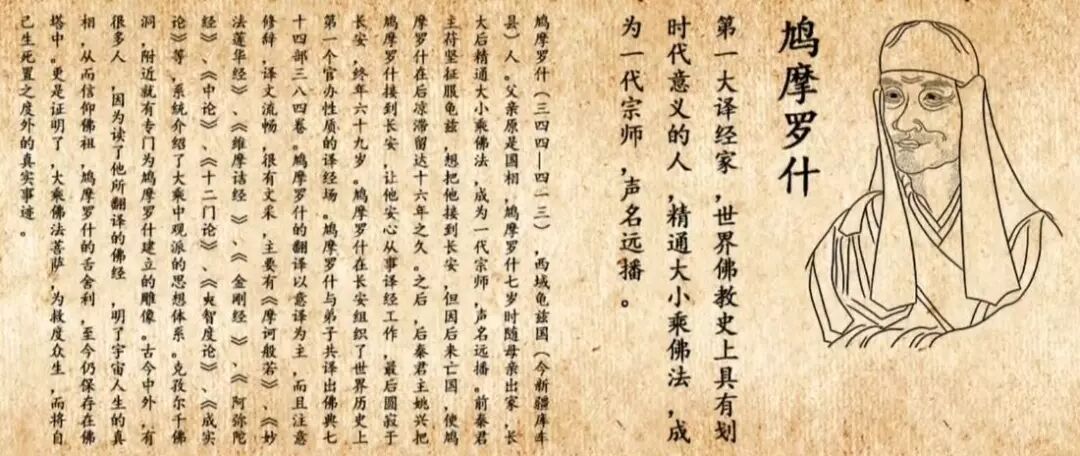 鸠摩罗什
第一大译经家，世界佛教史上具有划
时代意义的人，精通大小乘佛法，成
为一代宗师，声名远播。
鸠摩罗什（三四四—四一三），西域龟兹国（今新疆库车
县）人。父亲原是国相，鸠摩罗什七岁时随母亲出家，长
大后精通大小乘佛法，成为一代宗师，声名远播。前秦君
主荷坚征服龟兹，想把他接到长安，但因后来亡国，使鸠
摩罗什在后凉滞留达十六年之久。之后，后秦君主姚兴把
鸠摩罗什接到长安，让他安心从事译经工作，最后圆寂于
长安，终年六十九岁。鸠摩罗什在长安组织了世界历史上
第一个官办性质的译经场。鸠摩罗什与弟子共译出佛典七
十四部三八四卷。鸠摩罗什的翻译以意译为主，而且注意
修辞，译文流畅，很有文采，主要有《摩诃般若》、《妙
法莲华经》、《维摩诘经》、《金刚经》、《阿弥陀
经》、《中论》、《十二门论》、《大智度论》、《成实
论》等，系统介绍了大乘中观派的思想体系。克孜尔千佛
洞，附近就有专门为鸠摩罗什建立的雕像。古今中外，有
很多人，因为读了他所翻译的佛经，明了宇宙人生的真
相，从而信仰佛祖，鸠摩罗什的舌舍利，至今仍保存在佛
塔中。更是证明了，大乘佛法菩萨，为救度众生，而将自
己生死置之度外的真实事迹。